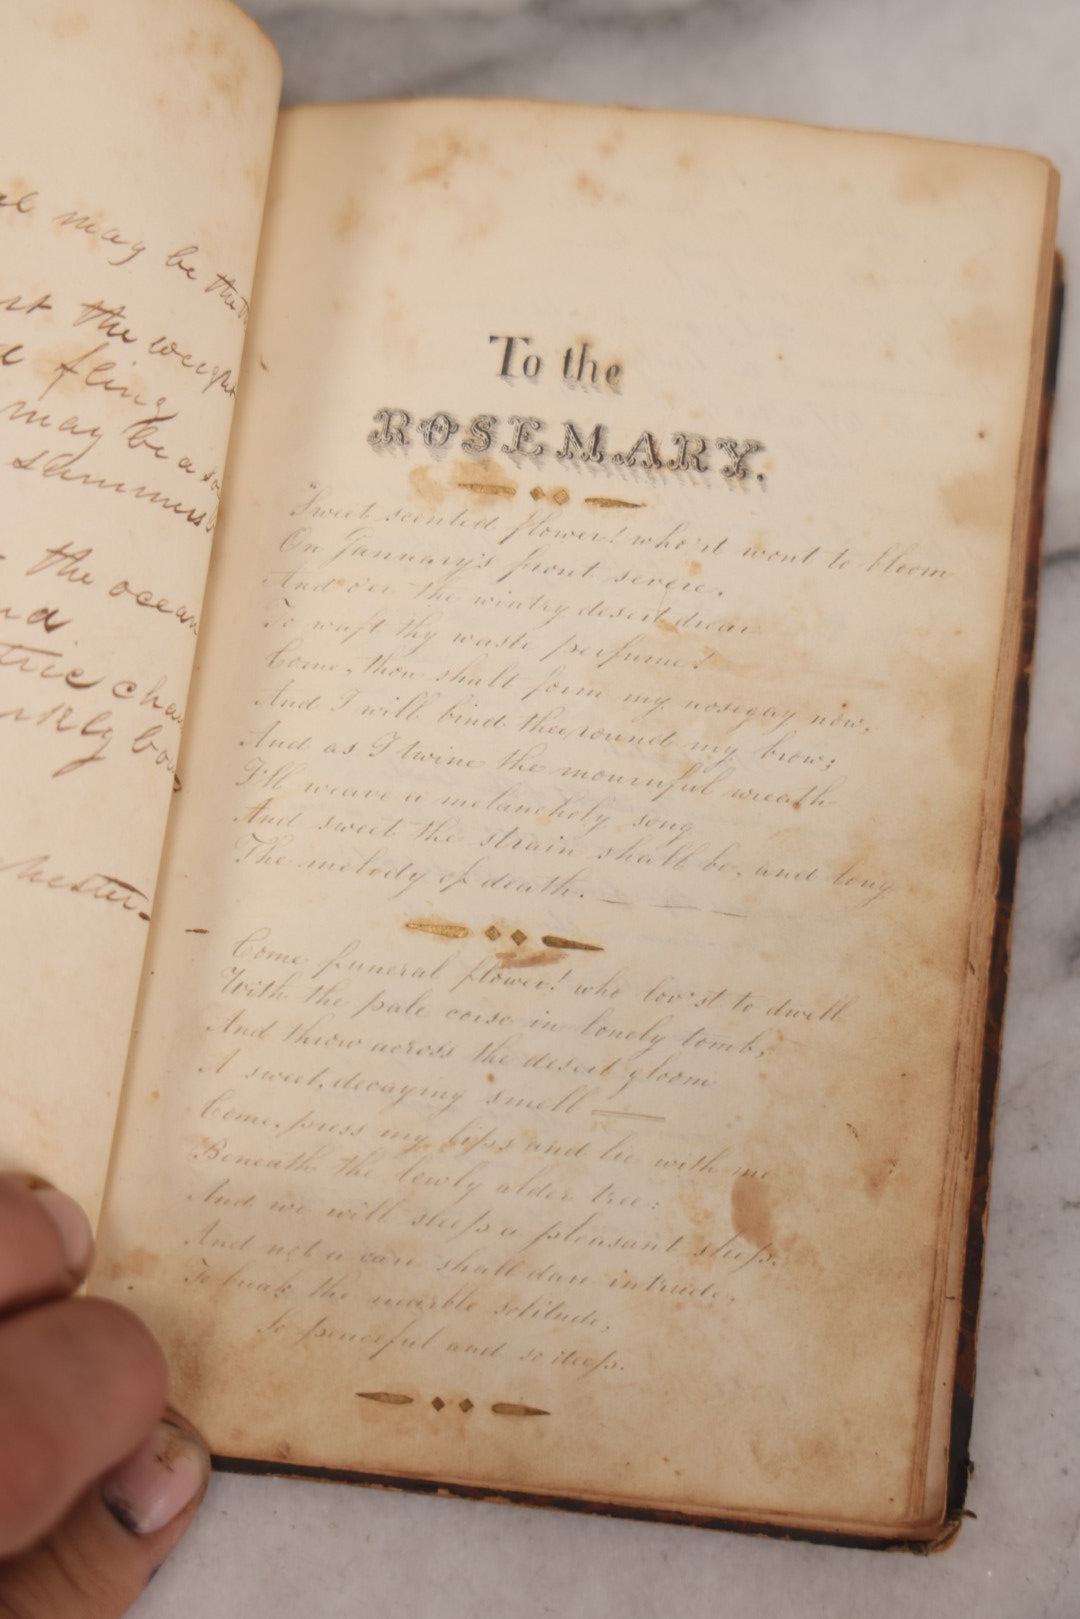 may be the
the weight
fling
may be a
summers
the ocean
tric
To the
ROSEMARY.
"Sweet scented flower! who'rt wont to bloom
On January's front severe,
And o'er the wintry desert drear
To waft thy waste perfume!
Come, thou shalt form my nosegay now,
And I will bind thee round my brow;
And as I twine the mournful wreath
I'll weave a melancholy song
And sweet the strain shall be, and long
The melody of death. _ _ _
Come funeral flower! who lov'st to dwell
With the pale corse in lonely tomb,
And throw across the desert gloom
A sweet, decaying smell ——
Come, press my lips and lie with me
Beneath the lowly alder tree:
And we will sleep a pleasant sleep.
And not a care shall dare intrude,
To break the marble solitude,
So peaceful and so deep.